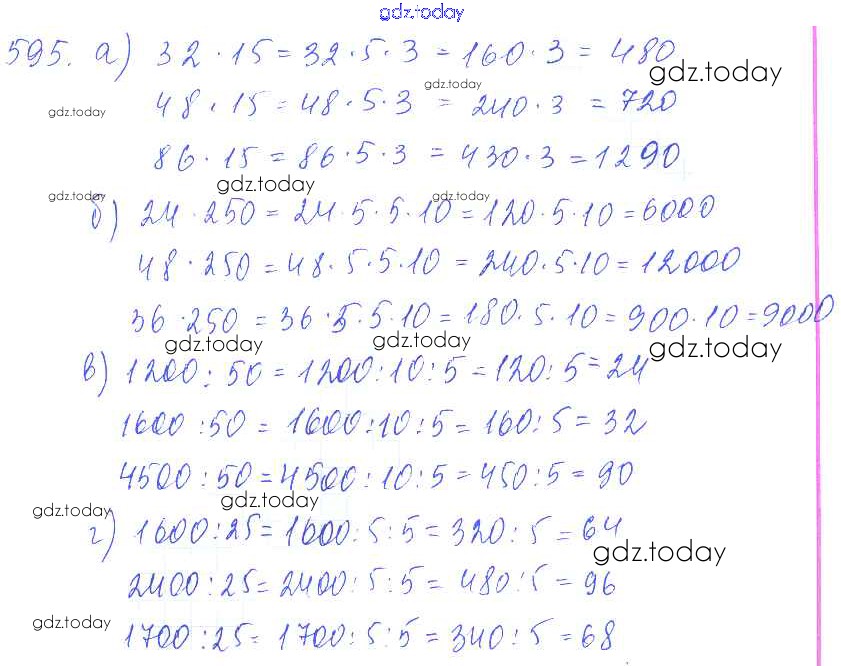 gdz.today
595. а) 32 · 15 = 32 · 5 · 3 = 160 · 3 = 480
gdz.today
gdz.today
48 · 15 = 48 · 5 · 3 = 240 · 3 = 720
gdz.today
86 · 15 = 86 · 5 · 3 = 430 · 3 = 1290
gdz.today
gdz.today
gdz.today
б) 24 · 250 = 24 · 5 · 5 · 10 = 120 · 5 · 10 = 6000
48 · 250 = 48 · 5 · 5 · 10 = 240 · 5 · 10 = 12000
36 · 250 = 36 · 5 · 5 · 10 = 180 · 5 · 10 = 900 · 10 = 9000
gdz.today
gdz.today
gdz.today
в) 1200 : 50 = 1200 : 10 : 5 = 120 : 5 = 24
1600 : 50 = 1600 : 10 : 5 = 160 : 5 = 32
4500 : 50 = 4500 : 10 : 5 = 450 : 5 = 90
gdz.today
gdz.today
г) 1600 : 25 = 1600 : 5 : 5 = 320 : 5 = 64
gdz.today
2400 : 25 = 2400 : 5 : 5 = 480 : 5 = 96
gdz.today
1700 : 25 = 1700 : 5 : 5 = 340 : 5 = 68